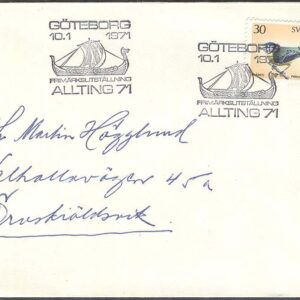 GÖTEBORG
10.1 1971
FRIMÄRKSUTSTÄLLNING
ALLTING 71
GÖTEBORG
10.1 197
FRIMÄRKSUTSTÄLLNING
ALLTING 71
30 SV
Martin Högglund
alhallavägen 45a
Örnsköldsvik